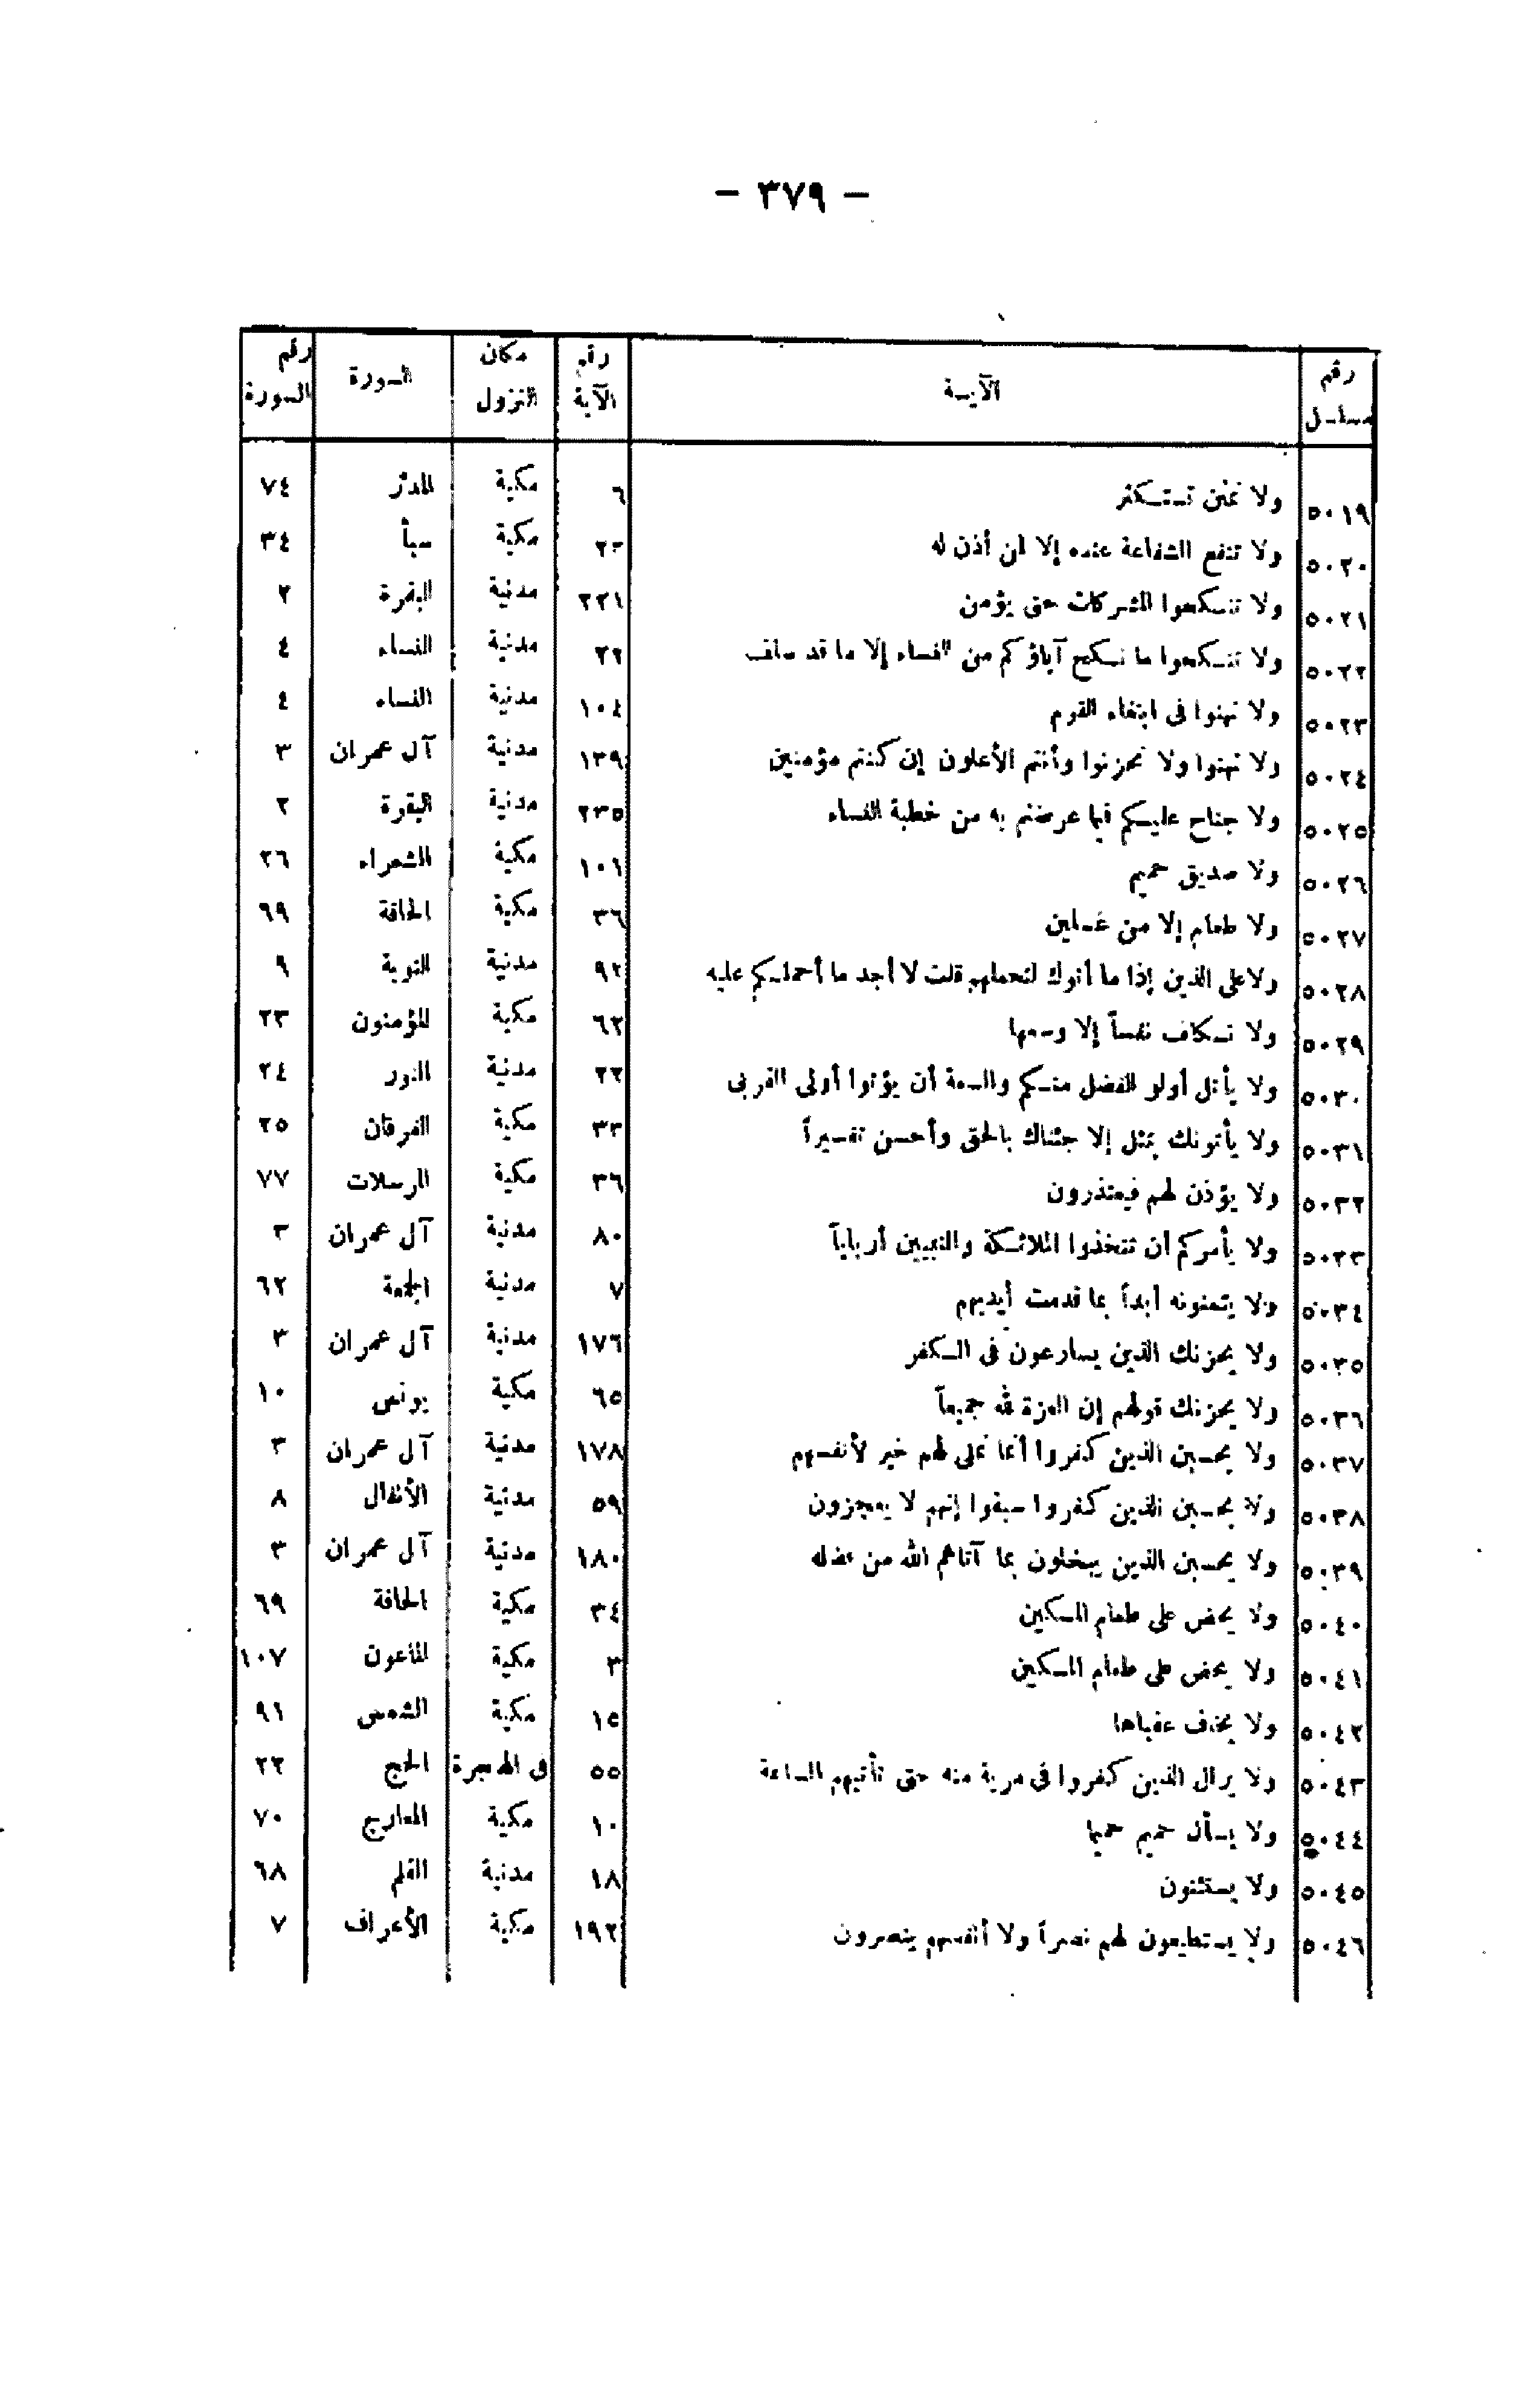 — ٣٧٩ —
رقم مسلسل | الآيـــة | رقم الآية | مكان النزول | السورة | رقم السورة
٥٠١٩ | ولا تمنن تستكثر | ٦ | مكية | المدثر | ٧٤
٥٠٢٠ | ولا تنفع الشفاعة عنده إلا لمن أذن له | ٢٣ | مكية | سبأ | ٣٤
٥٠٢١ | ولا تنكحوا المشركات حتى يؤمن | ٢٢١ | مدنية | البقرة | ٢
٥٠٢٢ | ولا تنكحوا ما نكح آباؤكم من النساء إلا ما قد سلف | ٢٢ | مدنية | النساء | ٤
٥٠٢٣ | ولا تهنوا فى ابتغاء القوم | ١٠٤ | مدنية | النساء | ٤
٥٠٢٤ | ولا تهنوا ولا تحزنوا وأنتم الأعلون إن كنتم مؤمنين | ١٣٩ | مدنية | آل عمران | ٣
٥٠٢٥ | ولا جناح عليكم فيما عرضتم به من خطبة النساء | ٢٣٥ | مدنية | البقرة | ٢
٥٠٢٦ | ولا صديق حميم | ١٠١ | مكية | الشعراء | ٢٦
٥٠٢٧ | ولا طعام إلا من غسلين | ٣٦ | مكية | الحاقة | ٦٩
٥٠٢٨ | ولا على الذين إذا ما أتوك لتحملهم قلت لا أجد ما أحملكم عليه | ٩٢ | مدنية | التوبة | ٩
٥٠٢٩ | ولا نكلف نفساً إلا وسعها | ٦٢ | مكية | المؤمنون | ٢٣
٥٠٣٠ | ولا يأتل أولو الفضل منكم والسعة أن يؤتوا أولى القربى | ٢٢ | مدنية | النور | ٢٤
٥٠٣١ | ولا يأتونك بمثل إلا جئناك بالحق وأحسن تفسيراً | ٣٣ | مكية | الفرقان | ٢٥
٥٠٣٢ | ولا يؤذن لهم فيعتذرون | ٣٦ | مكية | المرسلات | ٧٧
٥٠٣٣ | ولا يأمركم أن تتخذوا الملائكة والنبيين أرباباً | ٨٠ | مدنية | آل عمران | ٣
٥٠٣٤ | ولا يتمنونه أبداً بما قدمت أيديهم | ٧ | مدنية | الجمعة | ٦٢
٥٠٣٥ | ولا يحزنك الذين يسارعون فى الكفر | ١٧٦ | مدنية | آل عمران | ٣
٥٠٣٦ | ولا يحزنك قولهم إن العزة لله جميعاً | ٦٥ | مكية | يونس | ١٠
٥٠٣٧ | ولا يحسبن الذين كفروا أنما نملى لهم خير لأنفسهم | ١٧٨ | مدنية | آل عمران | ٣
٥٠٣٨ | ولا يحسبن الذين كفروا سبقوا إنهم لا يعجزون | ٥٩ | مدنية | الأنفال | ٨
٥٠٣٩ | ولا يحسبن الذين يبخلون بما آتاهم الله من فضله | ١٨٠ | مدنية | آل عمران | ٣
٥٠٤٠ | ولا يحض على طعام المسكين | ٣٤ | مكية | الحاقة | ٦٩
٥٠٤١ | ولا يحض على طعام المسكين | ٣ | مكية | الماعون | ١٠٧
٥٠٤٢ | ولا يخاف عقباها | ١٥ | مكية | الشمس | ٩١
٥٠٤٣ | ولا يزال الذين كفروا فى مرية منه حتى تأتيهم الساعة | ٥٥ | فى الهجرة | الحج | ٢٢
٥٠٤٤ | ولا يسأل حميم حميما | ١٠ | مكية | المعارج | ٧٠
٥٠٤٥ | ولا يستثنون | ١٨ | مدنية | القلم | ٦٨
٥٠٤٦ | ولا يستطيعون لهم نصراً ولا أنفسهم ينصرون | ١٩٢ | مكية | الأعراف | ٧